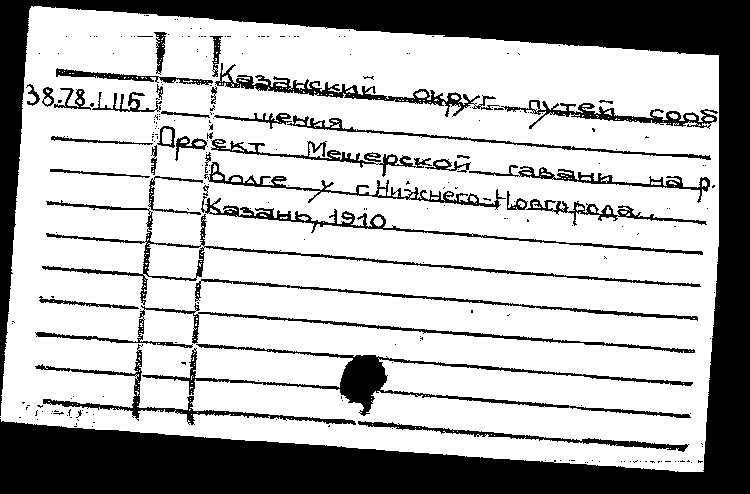 Казанский округ путей сооб
38.78.1.115.
щения.
Проект Мещерской гавани на р.
Волге у г. Нижнего-Новгорода.
Казань, 1910.